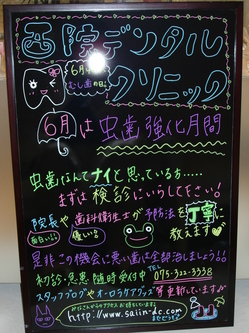 西院デンタル
クリニック
6月4日は
むし歯の日♪
6月は虫歯強化月間
虫歯なんてナイと思っている方……
まずは検診にいらして下さい!
院長や歯科衛生士が予防法を丁寧に
面白い!! 優しい!! 教えます
是非この機会に悪い歯は全部治しましょう!!
初診・急患随時受付中 TEL 075-323-3338
スタッフブログやオーラルケアグッズ等更新しています♪
http://www.saiin-dc.com